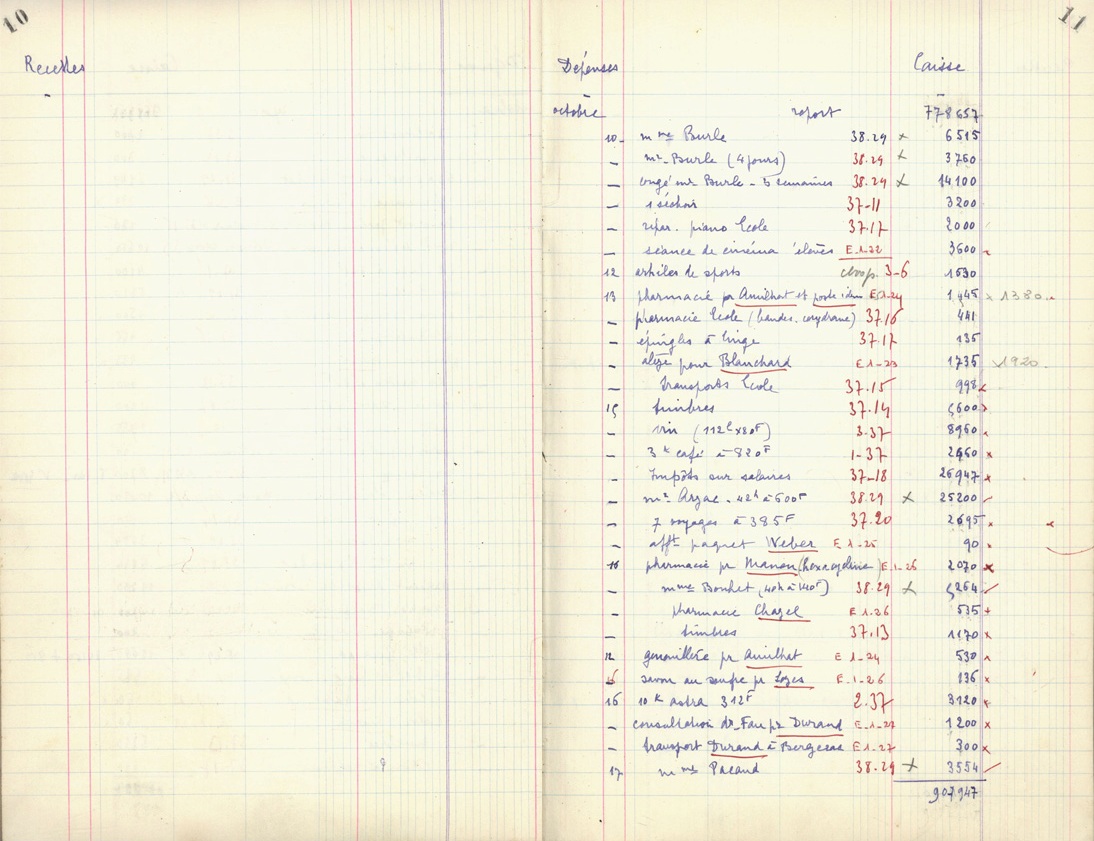 10
11
Recettes
Dépenses Caisse
octobre report 778657
10 - mme Burle 38.29 x 6515
- mr Burle (4 jours) 38.29 x 3760
- congé mr Burle - 3 semaines 38.29 x 14100
- 1 séchoir 37-11 3200
- répar. piano Ecole 37.17 2000
- séance de cinéma élèves E.1-22 3600
12 articles de sports coop. 3-6 1630
13 pharmacie pr Amilhat et poste idem E.1-24 1445 x 1380
- pharmacie Ecole (bandes. corydrane) 37.16 441
- épingles à linge 37.17 135
- alèze pour Blanchard E.1-23 1735 x 1920
- transports Ecole 37.15 998
15 timbres 37.14 6600
- vin (112l x 80F) 3.37 8960
- 3k café à 820F 1-37 2460 x
- Impôts sur salaires 37-18 26947 x
- mr Arzac - 42h à 600F 38.29 x 25200
- 7 voyages à 385F 37.20 2695 x
- afft paquet Weber E 1-25 90 x
16 pharmacie pr Manon (hexacycline) E.1-26 2070 x
- mme Bonhet (40h à 140F) 38.29 x 5264
- pharmacie Chazel E 1.26 535 +
- timbres 37.13 1170 x
12 genouillère pr Amilhat E 1-24 530
15 savon au soufre pr Lozes E.1-26 136 x
16 10k astra 312F 2.37 3120 x
- consultation dr Fau pr Durand E.1-27 1200 x
- transport Durand à Bergezac E 1-27 300 x
17 mme Pacaud 38.29 x 3554
907947